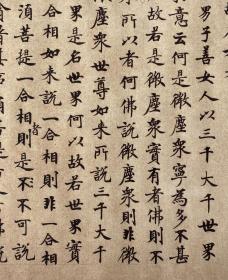 男子善女人以三千大千世界
意云何是微塵眾寧為多不甚
故若是微塵眾實有者佛則不
所以者何佛說微塵眾則非微
塵眾世尊如来所說三千大千
世界是名世界何以故若世界實
合相如来說一合相則非一合相
須菩提一合相者則是不不可說